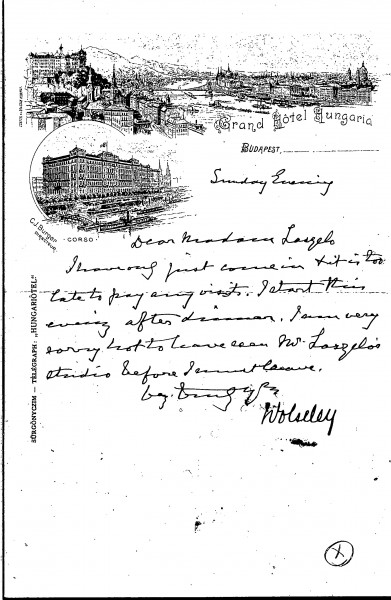 Grand Hôtel Hungaria
BUDAPEST,
Sunday Evening
C.J. Burger
DIRECTEUR.
CORSO
SÜRGÖNYCZIM — TÉLÉGRAPH: „HUNGARIÔTEL"
Dear Madam Laszlo
I have only just come in & it is too
late to pay any visit. I start this
evening after dinner. I am very
sorry not to have seen Mr Laszlo's
studio before I must leave.
Wolseley
X